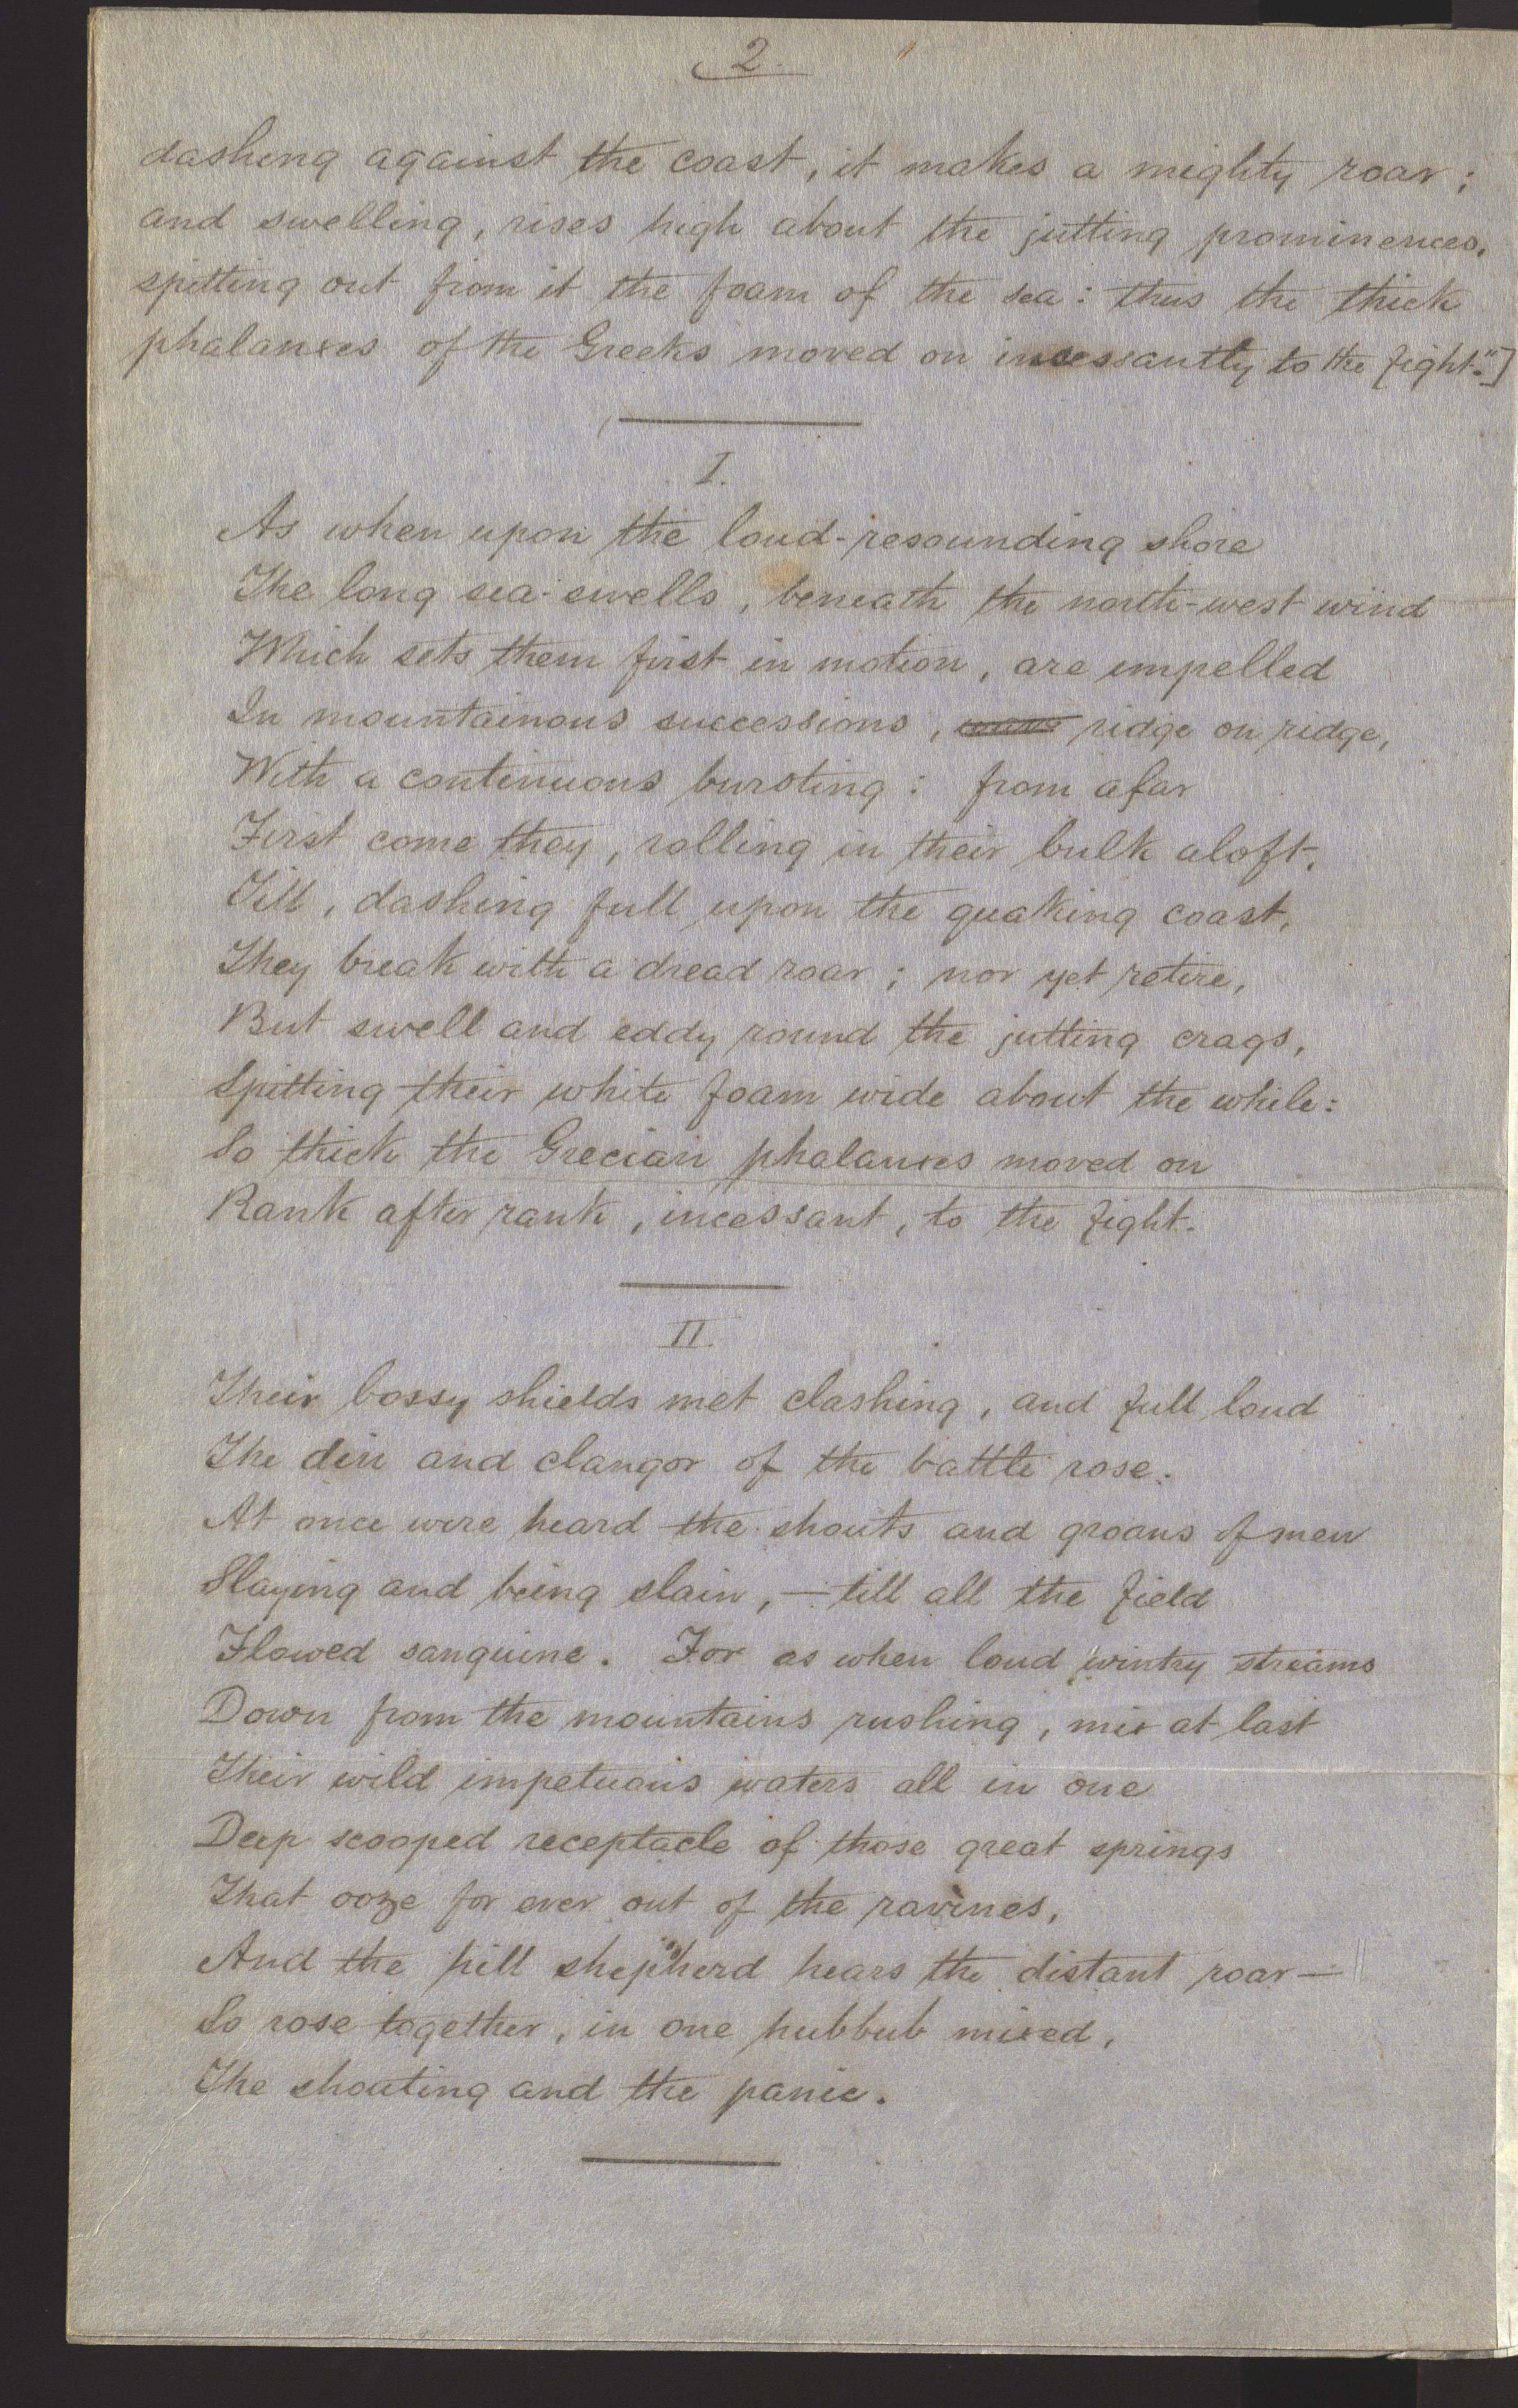 2.
dashing against the coast, it makes a mighty roar;
and swelling, rises high about the jutting prominences,
spitting out from it the foam of the sea: thus the thick
phalanxes of the Greeks moved on incessantly to the fight."]
I.
As when upon the loud-resounding shore
The long sea-swells, beneath the north-west wind
Which sets them first in motion, are impelled
In mountainous successions, ridge on ridge,
With a continuous bursting: from afar
First come they, rolling in their bulk aloft,
Till, dashing full upon the quaking coast,
They break with a dread roar; nor yet retire,
But swell and eddy round the jutting crags,
Spitting their white foam wide about the while:
So thick the Grecian phalanxes moved on
Rank after rank, incessant, to the fight.
II.
Their bossy shields met clashing, and full loud
The din and clangor of the battle rose.
At once were heard the shouts and groans of men
Slaying and being slain,—till all the field
Flowed sanguine. For as when loud wintry streams
Down from the mountains rushing, mix at last
Their wild impetuous waters all in one
Deep scooped receptacle of those great springs
That ooze for ever out of the ravines,
And the hill shepherd hears the distant roar—
So rose together, in one hubbub mixed,
The shouting and the panic.